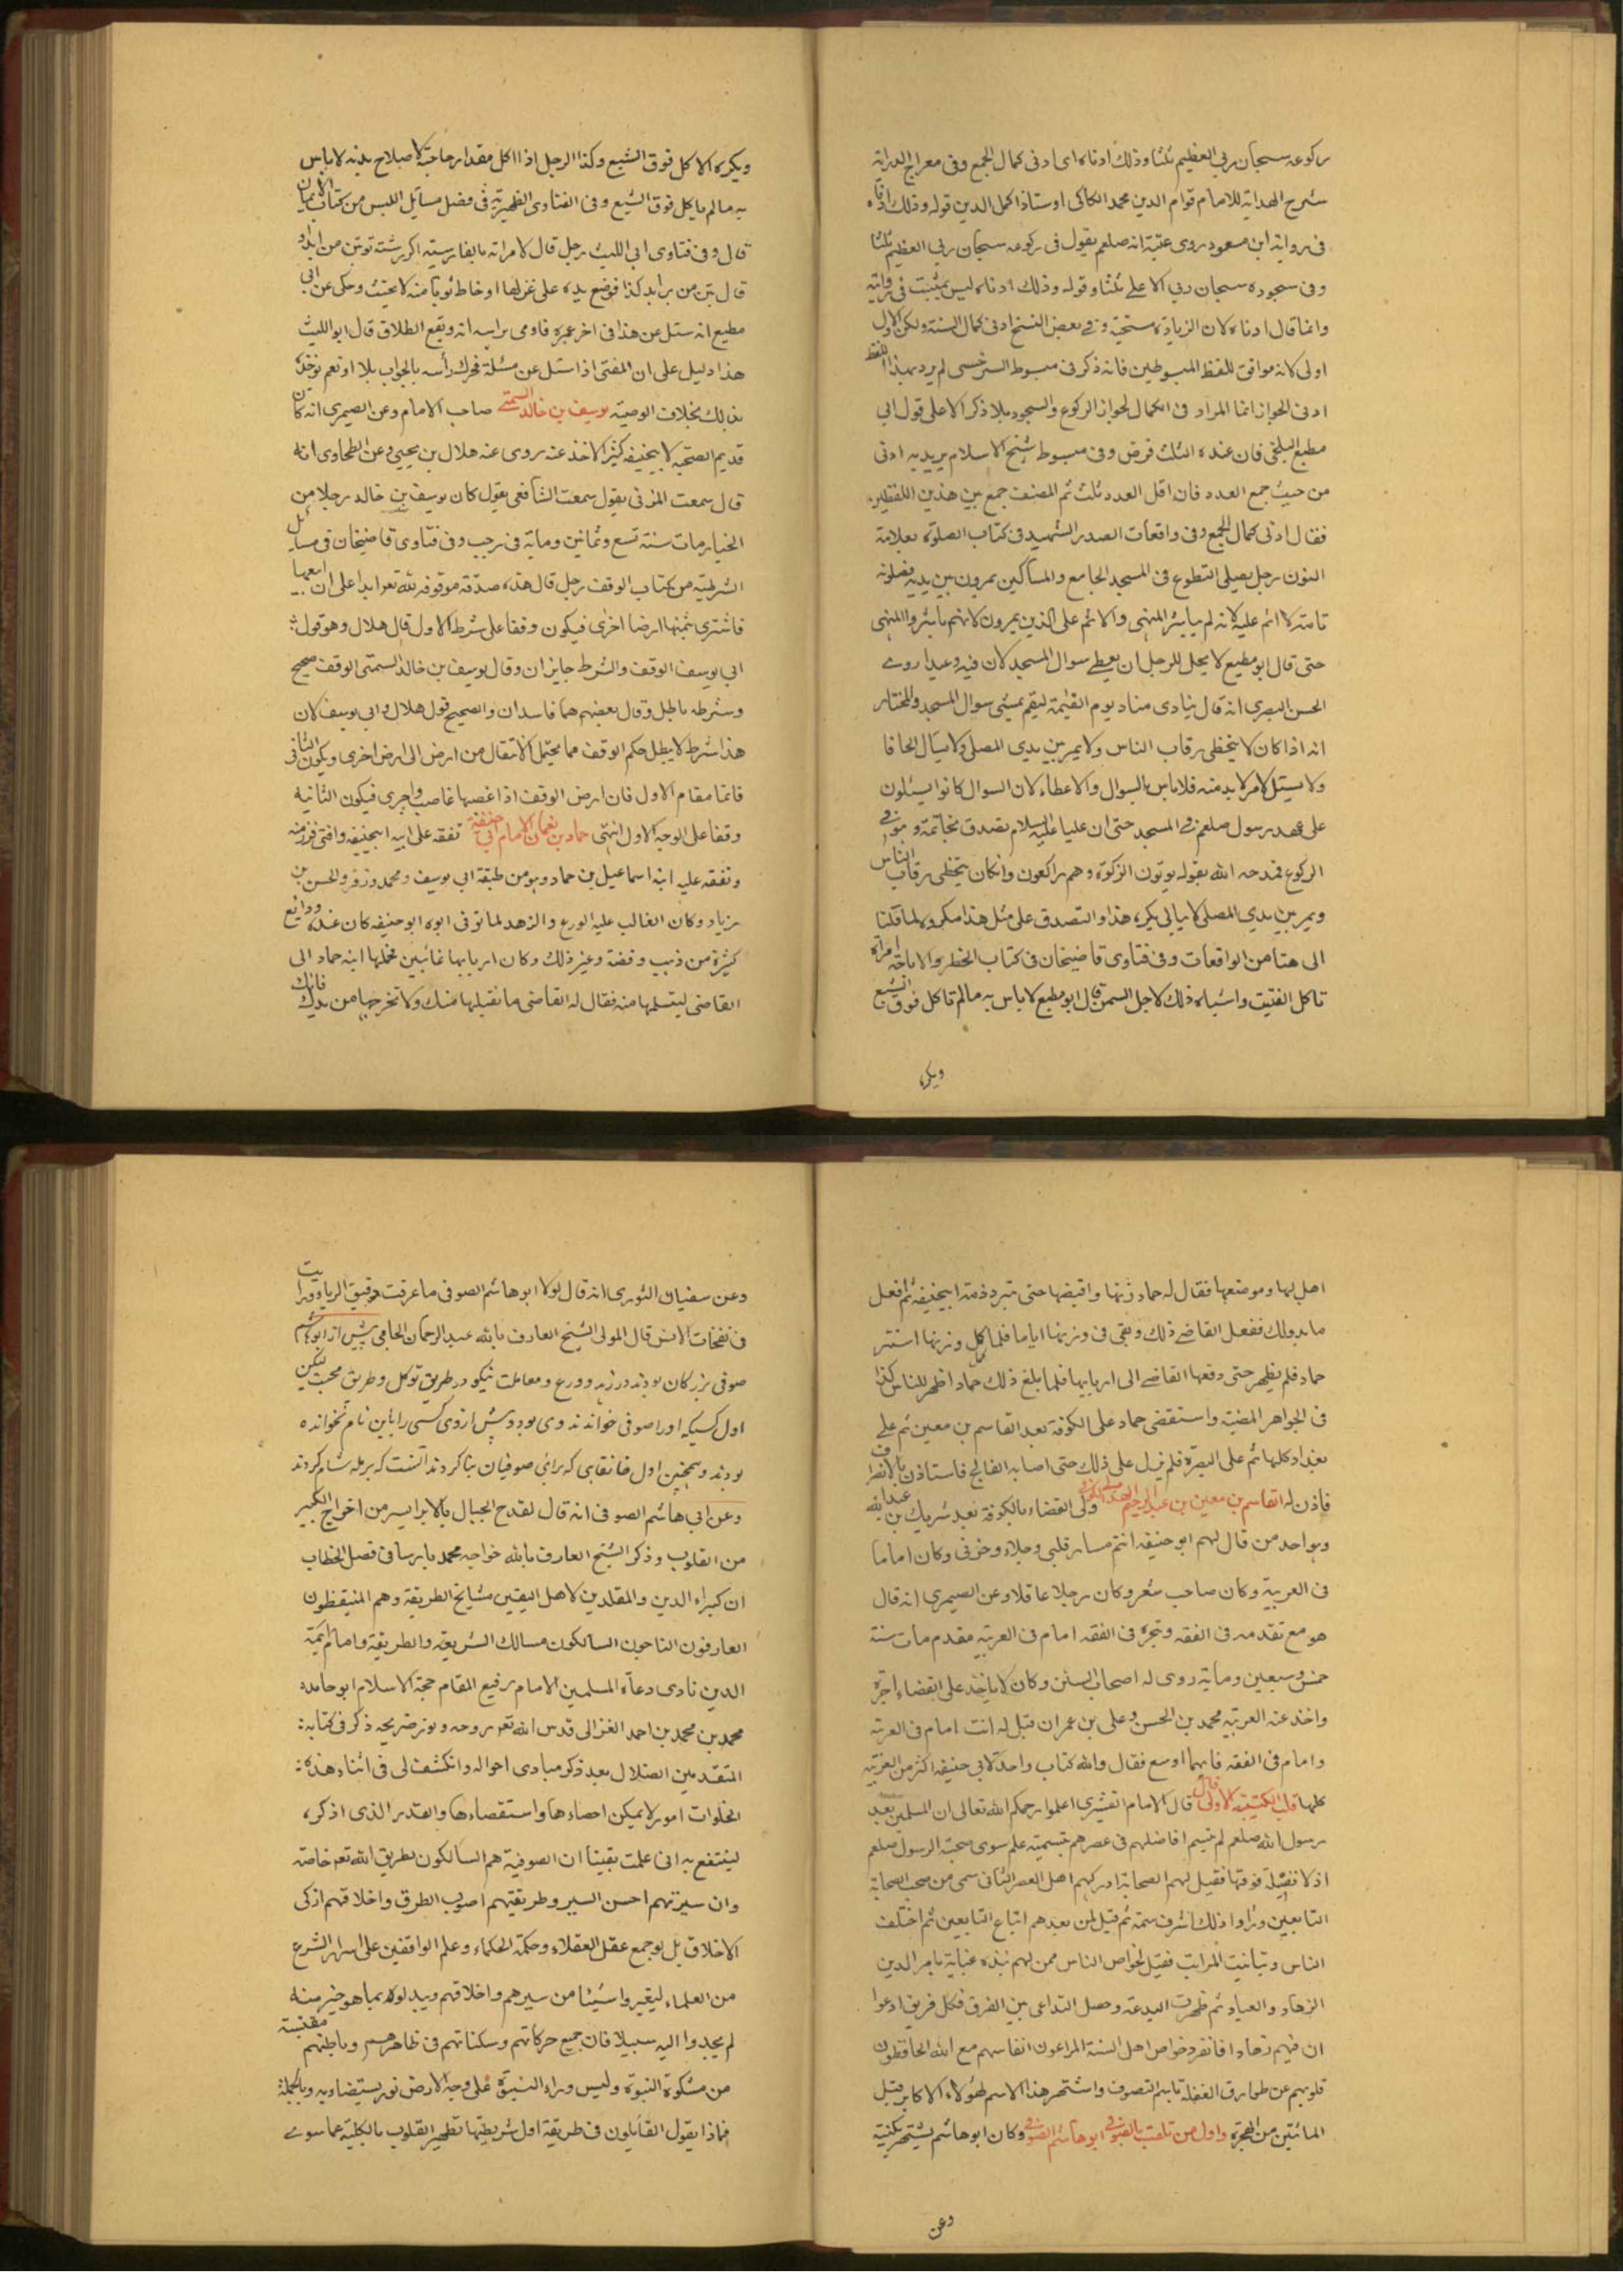 ركوعه سبحان ربي العظيم ثلثا وذلك ادناه اى ادنى كمال الجمع وفى معراج الدراية
شرح الهداية للامام قوام الدين محمد الكاكى اوستاذ اكمل الدين قوله وذلك ادناه
فى رواية ابن مسعود روى عتبة انه صلعم يقول فى ركوعه سبحان ربي العظيم ثلثا
وفى سجوده سبحان ربي الاعلى ثلثا وقوله وذلك ادناه ليس بمثبت فى رواية
وانما قال ادناه لان الزيادة مستحبة وفى بعض النسخ ادنى كمال السنة ولكن الاول
اولى لانه موافق للفظ المبسوطين فانه ذكر فى مبسوط السرخسى لم يرد بهذا اللفظ
ادنى الجواز انما المراد فى الكمال لجواز الركوع والسجود بلا ذكر الا على قول ابى
مطيع البلخى فان عنده الثلث فرض وفى مبسوط شيخ الاسلام يريد به ادنى
من حيث جمع العدد فان اقل العدد ثلث ثم المصنف جمع بين هذين اللفظين
فقال ادنى كمال الجمع وفى واقعات الصدر الشهيد فى كتاب الصلوة بعلامة
النون رجل يصلى التطوع فى المسجد الجامع والمساكين يمرون بين يديه فصلوته
تامة لا اثم عليه لانه لم يباشر المنهى والاثم على الذين يمرون لانهم باشروا المنهى
حتى قال ابو مطيع لا يحل للرجل ان يعطى سوال المسجد لان فيه وعيدا روى
الحسن البصرى انه قال ينادى مناد يوم القيمة ليقم بمسئى سوال المسجد والمختار
انه اذا كان لا يتخطى رقاب الناس ولا يمر بين يدى المصلى ولا يسأل الحافا
ولا يسئل لامر لا بد منه فلا باس بالسوال والاعطاء لان السوال كانوا يسئلون
على عهد رسول صلعم فى المسجد حتى ان عليا عليه السلام تصدق بخاتمه وهو فى
الركوع فمدحه الله بقوله يوتون الزكوة وهم راكعون وان كان يتخطى رقاب الناس
ويمر بين يدى المصلى لا يبالى يكره هذا والتصدق على مثل هذا مكروه لما قلنا
الى هنا من الواقعات وفى فتاوى قاضيخان فى كتاب الحظر والاباحة امراة
تاكل الفتيت واشباه ذلك لاجل السمن قال ابو مطيع لا باس به مالم تاكل فوق الشبع
ويكره
ويكره الاكل فوق الشبع وكذا الرجل اذا اكل مقدار حاجته لاصلاح بدنه لا باس
به مالم ياكل فوق الشبع وفى الفتاوى الظهيرية فى فصل مسائل اللبس من كتاب الايمان
قال وفى فتاوى ابى الليث رجل قال لامراته بالفارسية اكر رشته تو بتن من ايداو
قال بتن من برايد كذا فوضع يده على غزلها او خاط ثوبا منه لا يحنث وحكى عن ابى
مطيع انه سئل عن هذا فى اخر عمره فاومى براسه انه ويقع الطلاق قال ابو الليث
هذا دليل على ان المفتى اذا سئل عن مسئلة فحرك رأسه بالجواب بلا او نعم يوخذ
بذلك بخلاف الوصية يوسف بن خالد السمتى صاحب الامام وعن الصيمرى انه كان
قديم الصحبة لابيحنيفة كثير الاخذ عنه روى عنه هلال بن يحيى وعن الطحاوى انه
قال سمعت المزنى يقول سمعت الشافعى يقول كان يوسف بن خالد رجلا من
الخيار مات سنة تسع وثمانين وماية فى رجب وفى فتاوى قاضيخان فى مسايل
الشرطية من كتاب الوقف رجل قال هذه صدقة موقوفه لله تعو ابدا على ان ابيعها
فاشترى بثمنها ارضا اخرى فيكون وقفا على شرط الاول قال هلال وهو قول
ابى يوسف الوقف والشرط جايزان وقال يوسف بن خالد السمتى الوقف صحيح
وشرطه باطل وقال بعضهم هما فاسدان والصحيح قول هلال وابى يوسف لان
هذا شرط لا يبطل حكم الوقف مما يحتمل الانتقال من ارض الى ارض اخرى ويكون الثانى
قائما مقام الاول فان ارض الوقف اذا غصبها غاصب واجرى فيكون الثانيه
وقفا على الوجه الاول انتهى حماد بن نعمان الامام ابى حنيفة تفقه على ابيه ابيحنيفة وافتى فى زمنه
وتفقه عليه ابنه اسماعيل بن حماد وهو من طبقة ابى يوسف ومحمد وزفر والحسن بن
زياد وكان الغالب عليه الورع والزهد لما توفى ابوه ابو حنيفه كان عنده ودايع
كثيرة من ذهب وفضة وغير ذلك وكان اربابها غائبين فحملها ابنه حماد الى
القاضى ليتسلمها منه فقال له القاضى ما نقبلها منك ولا تخرجها من يديك فانك
اهل لها وموضعها فقال له حماد زنها واقبضها حتى تبرد ذمة ابيحنيفة ثم افعل
ما بدولك ففعل القاضى ذلك وبقى فى وزنها اياما فلما كمل وزنها استتر
حماد فلم يظهر حتى دفعها القاضى الى اربابها فلما بلغ ذلك حماد اظهر للناس كذا
فى الجواهر المضية واستقضى حماد على الكوفة بعد القاسم بن معين ثم على
بغداد كلها ثم على البصرة فلم يزل على ذلك حتى اصابه الفالج فاستاذن بالانصراف
فاذن له القاسم بن معين بن عبد الرحيم الهذلى الكوفى ولى القضاء بالكوفة بعد شريك بن عبد الله
وهو احد من قال لهم ابو حنيفة انتم مسار قلبى وجلاء وحزنى وكان اماما
فى العربية وكان صاحب شعر وكان رجلا عاقلا وعن الصيمرى انه قال
هو مع تقدمه فى الفقه وتبحره فى الفقه امام فى العربية مقدم مات سنة
خمس وسبعين وماية روى له اصحاب السنن وكان لا ياخذ على القضاء اجرة
واخذ عنه العربية محمد بن الحسن وعلى بن عمران قيل له انت امام فى العربية
وامام فى الفقه فايهما اوسع فقال والله كتاب واحد لابى حنيفه اكثر من العربية
كلها قلب الكتيبه الاولى قال قال الامام القشيرى اعلموا رحمكم الله تعالى ان المسلمين بعد
رسول الله صلعم لم يتسم افاضلهم فى عصرهم بتسمية علم سوى صحبة الرسول صلعم
اذ لا فضيلة فوقها فقيل لهم الصحابة ادركهم اهل العصر الثانى سمى من صحب الصحابة
التابعين وراوا ذلك اشرف سمة ثم قيل لمن بعدهم اتباع التابعين ثم اختلف
الناس وتباينت المراتب فقيل لخواص الناس ممن لهم شده عناية بامر الدين
الزهاد والعباد ثم ظهرت البدعة وحصل التداعى بين الفرق فكل فريق ادعوا
ان فيهم زهادا فانفرد خواص اهل السنة المراعون انفاسهم مع الله الحافظون
قلوبهم عن طوارق الغفلة باسم التصوف واشتهر هذا الاسم لهؤلاء الاكابر قبل
المائتين من الهجرة واول من تلقب بالصوفى ابو هاشم الصوفى وكان ابو هاشم يشتهر بكنية
وعن
وعن سفيان الثورى انه قال لولا ابو هاشم الصوفى ما عرفت دقيق الريا ورايت
فى نفحات الانس قال المولى الشيخ العارف بالله عبد الرحمان الجامى پيش از ابو هاشم
صوفى بزركان بودند در زهد وورع ومعاملت نيكو در طريق توكل وطريق محبت ليكن
اول كسيكه او را صوفى خواندند وى بود وپيش از وى كسى را باين نام نخوانده
بودند وهمچنين اول خانقاهى كه براى صوفيان بنا كردند آنست كه برمله شام كردند
وعن ابى هاشم الصوفى انه قال لقدح الجبال بالابر ايسر من اخراج الكبير
من القلوب وذكر الشيخ العارف بالله خواجه محمد پارسا فى فصل الخطاب
ان كبراء الدين والمقلدين لاهل اليقين مشايخ الطريقة وهم المتيقظون
العارفون الناجون السالكون مسالك الشريعة والطريقة واما ائمة
الدين نادى دعاة المسلمين الامام رفيع المقام حجة الاسلام ابو حامد
محمد بن محمد بن احمد الغزالى قدس الله تعو روحه ونور ضريحه ذكر فى كتابه
المنقذ من الضلال بعد ذكر مبادى احواله وانكشف لى فى اثناء هذه
الخلوات امور لا يمكن احصاءها واستقصاءها والقدر الذى اذكره
لينتفع به انى علمت يقينا ان الصوفية هم السالكون بطريق الله تعو خاصة
وان سيرتهم احسن السير وطريقتهم اصوب الطرق واخلاقهم ازكى
الاخلاق بل لو جمع عقل العقلاء وحكمة الحكماء وعلم الواقفين على اسرار الشرع
من العلماء ليغيروا شيئا من سيرهم واخلاقهم ويبدلوه بما هو خير منه
لم يجدوا اليه سبيلا فان جميع حركاتهم وسكناتهم فى ظاهرهم وباطنهم مقتبسة
من مشكوة النبوة وليس وراء النبوة على وجه الارض نور يستضاء به وبالجملة
فماذا يقول القائلون فى طريقة اول شريطتها تطهير القلوب بالكلية عما سوى